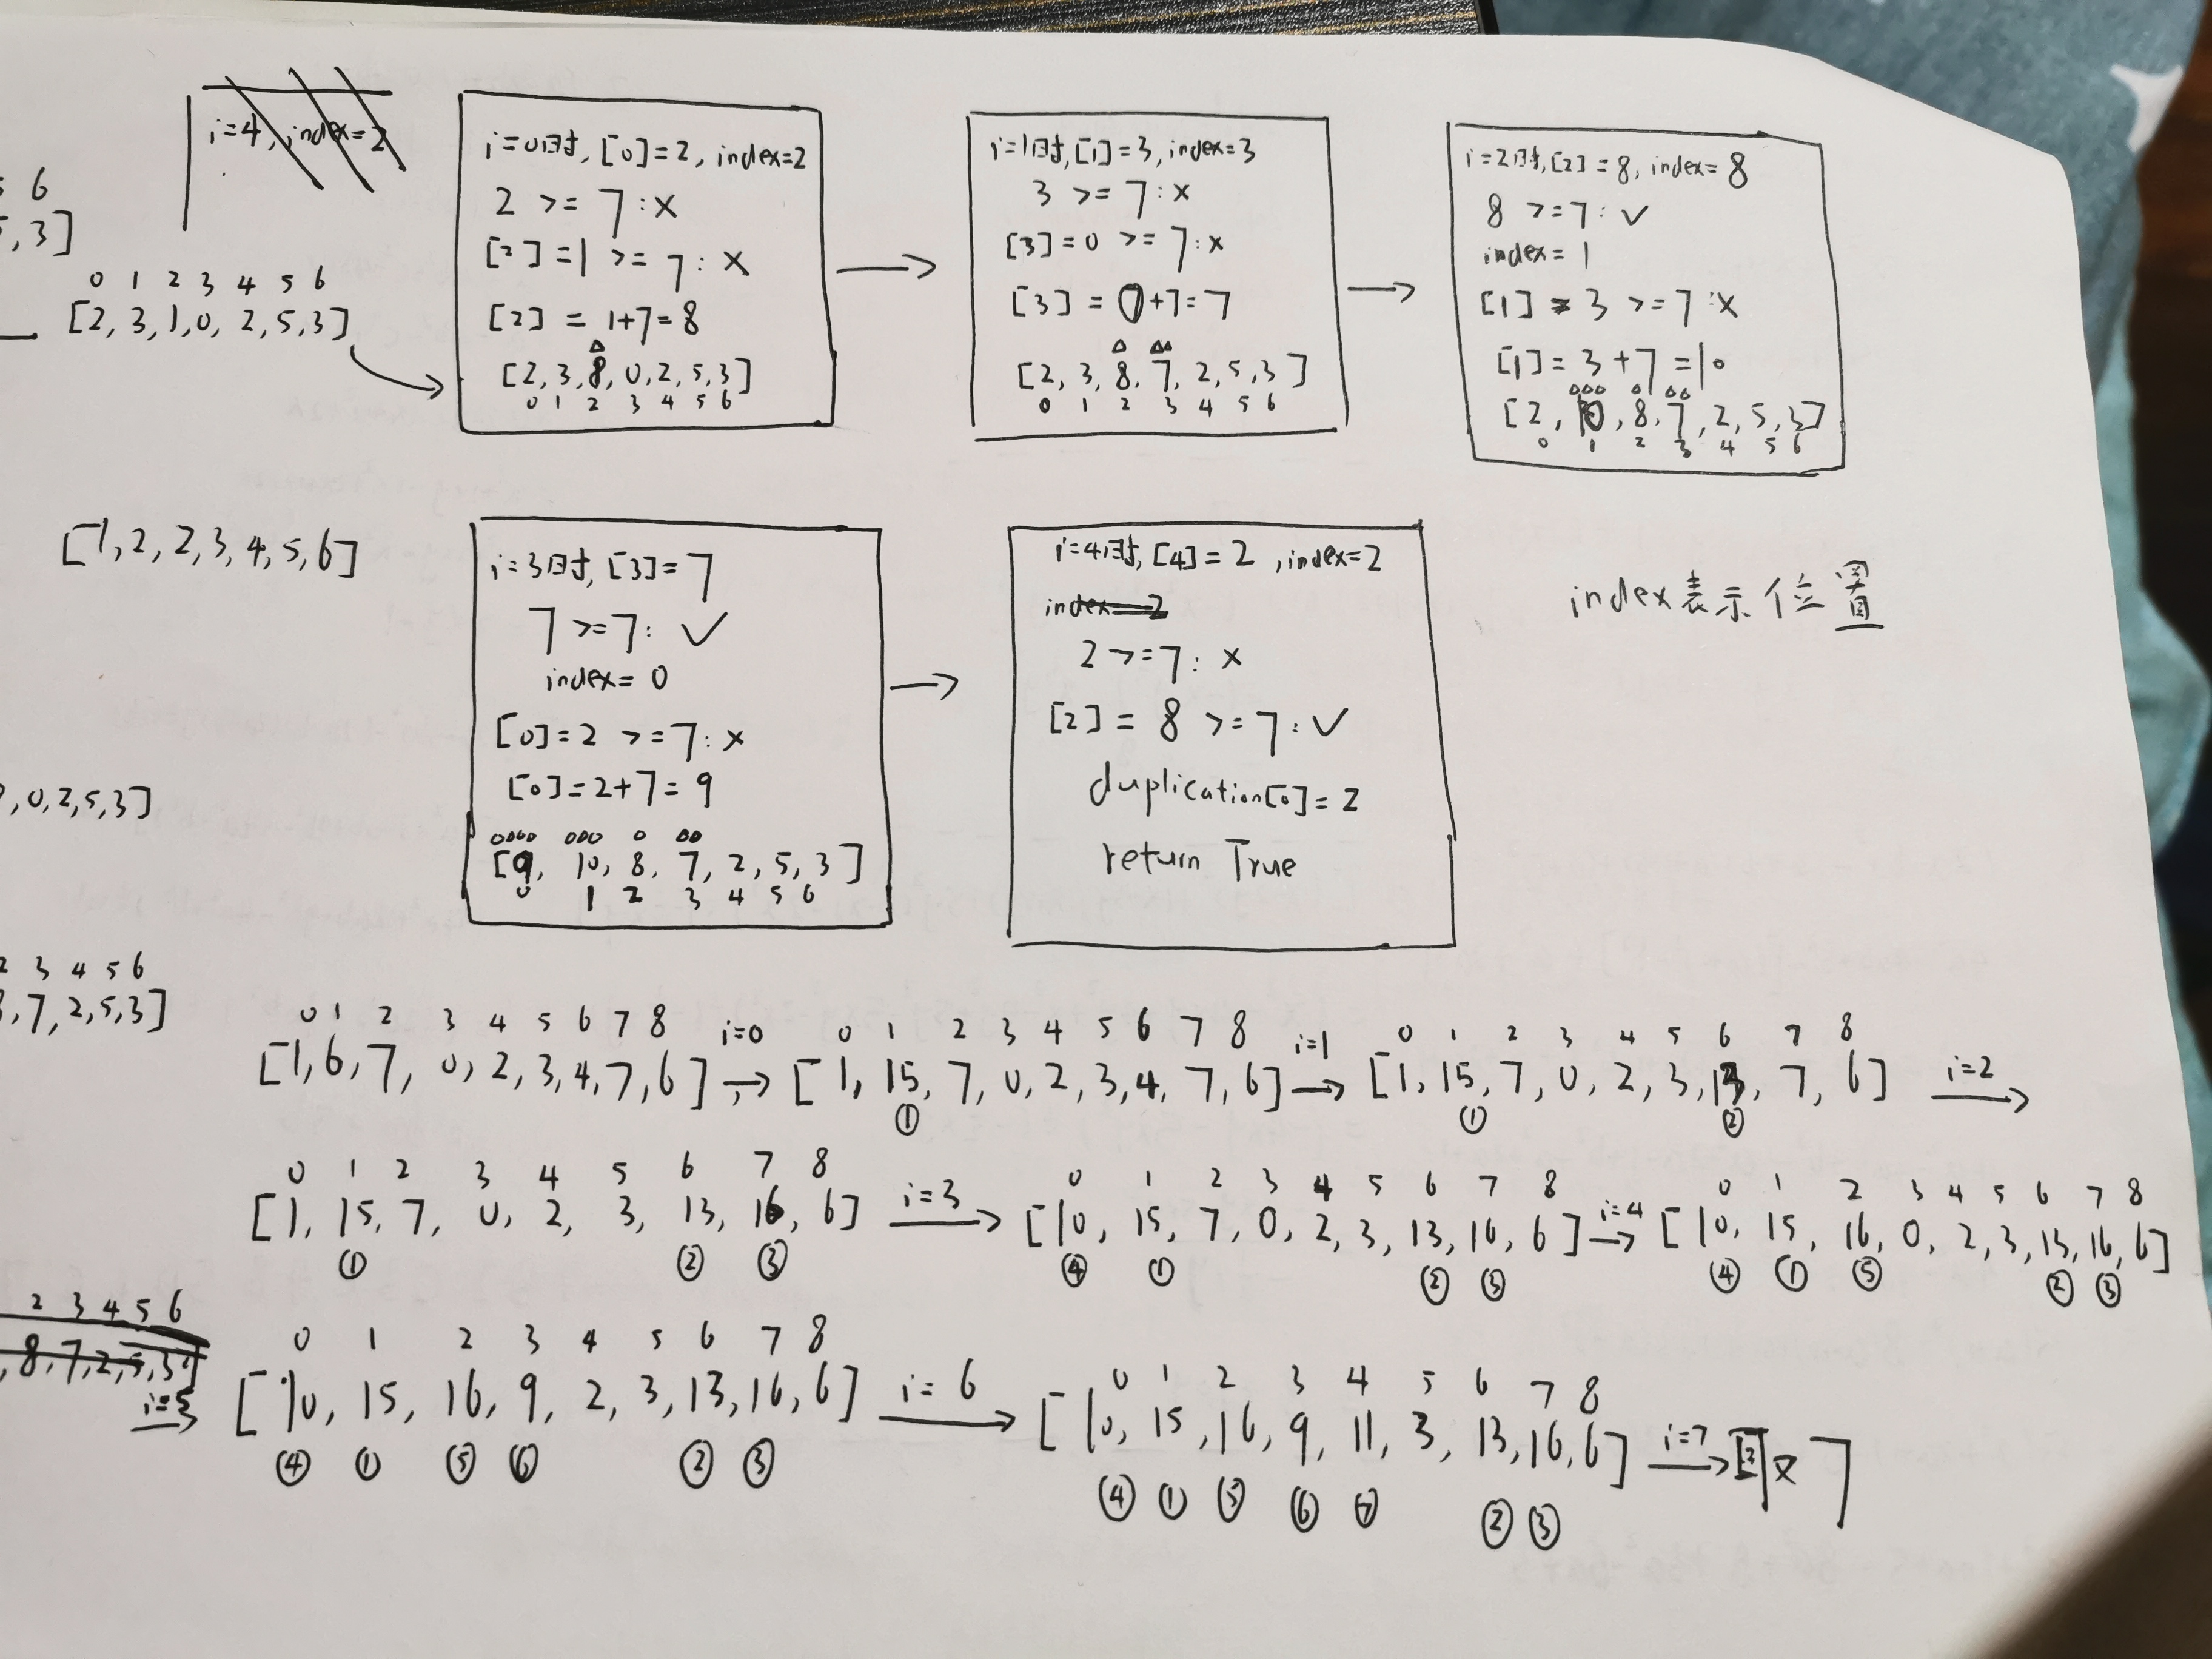 i=4, index=2
6
,3]
0 1 2 3 4 5 6
[2, 3, 1, 0, 2, 5, 3]
i=0时, [0]=2, index=2
2 >= 7 : x
[2] = 1 >= 7 : x
[2] = 1+7=8
[2, 3, 8, 0, 2, 5, 3]
0 1 2 3 4 5 6
i=1时, [1]=3, index=3
3 >= 7 : x
[3]=0 >= 7 : x
[3] = 0+7=7
[2, 3, 8, 7, 2, 5, 3]
0 1 2 3 4 5 6
i=2时, [2]=8, index=8
8 >=7 : ✓
index= 1
[1] = 3 >= 7 : x
[1] = 3 + 7 = 10
[2, 10, 8, 7, 2, 5, 3]
0 1 2 3 4 5 6
[1, 2, 2, 3, 4, 5, 6]
i=3时, [3]=7
7 >=7: ✓
index= 0
[0]=2 >=7: x
[0]=2+7= 9
[9, 10, 8, 7, 2, 5, 3]
0 1 2 3 4 5 6
i=4时, [4]=2 , index=2
index=2
2 >=7: x
[2] = 8 >=7: ✓
duplication[0]=2
return True
index表示位置
, 0, 2, 5, 3]
2 3 4 5 6
, 7, 2, 5, 3]
0 1 2 3 4 5 6 7 8
[1, 6, 7, 0, 2, 3, 4, 7, 6]
i=0 →
0 1 2 3 4 5 6 7 8
[1, 15, 7, 0, 2, 3, 4, 7, 6]
①
i=1 →
0 1 2 3 4 5 6 7 8
[1, 15, 7, 0, 2, 3, 13, 7, 6]
① ②
i=2 →
0 1 2 3 4 5 6 7 8
[1, 15, 7, 0, 2, 3, 13, 16, 6]
① ② ③
i=3 →
0 1 2 3 4 5 6 7 8
[10, 15, 7, 0, 2, 3, 13, 16, 6]
④ ① ② ③
i=4 →
0 1 2 3 4 5 6 7 8
[10, 15, 16, 0, 2, 3, 13, 16, 6]
④ ① ⑤ ② ③
2 3 4 5 6
, 8, 7, 2, 5, 3]
i=5 →
0 1 2 3 4 5 6 7 8
[10, 15, 16, 9, 2, 3, 13, 16, 6]
④ ① ⑤ ⑥ ② ③
i= 6 →
0 1 2 3 4 5 6 7 8
[10, 15, 16, 9, 11, 3, 13, 16, 6]
④ ① ⑤ ⑥ ⑦ ② ③
i=7 →
7